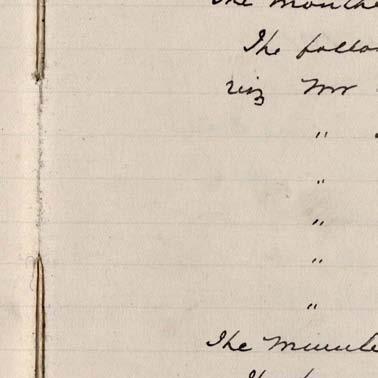 The month
The follo
viz Mr
"
"
"
"
"
The Minute